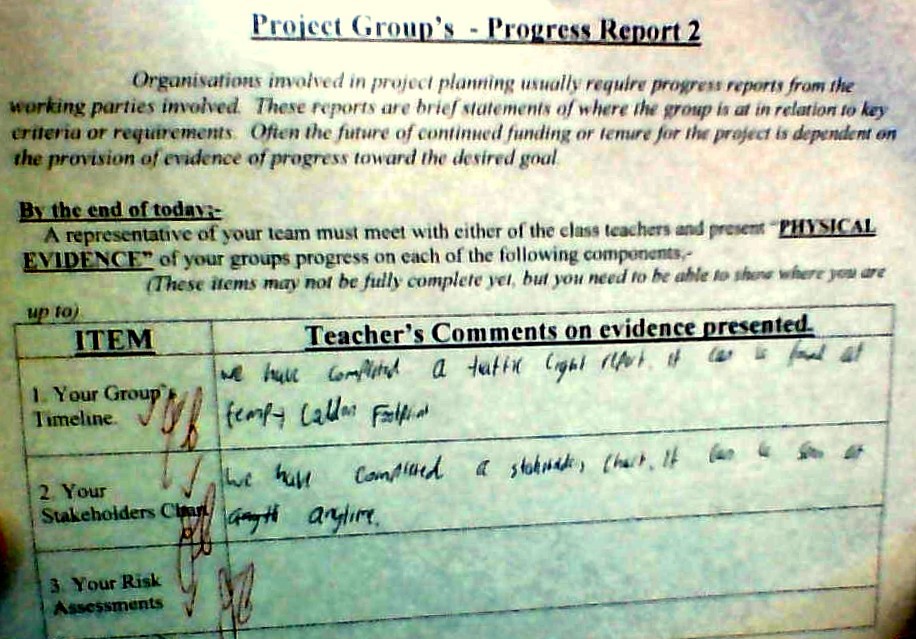 Project Group's - Progress Report 2
Organisations involved in project planning usually require progress reports from the
working parties involved. These reports are brief statements of where the group is at in relation to key
criteria or requirements. Often the future of continued funding or tenure for the project is dependent on
the provision of evidence of progress toward the desired goal.
By the end of today;-
A representative of your team must meet with either of the class teachers and present "PHYSICAL
EVIDENCE" of your groups progress on each of the following components,-
(These items may not be fully complete yet, but you need to be able to show where you are
up to)
ITEM
Teacher's Comments on evidence presented.
1. Your Group's
Timeline.
we have completed a traffic light report. it can be found at
Footprint
2. Your
Stakeholders Chart
we have completed a stakeholders chart. It can be seen at
anytime.
3. Your Risk
Assessments